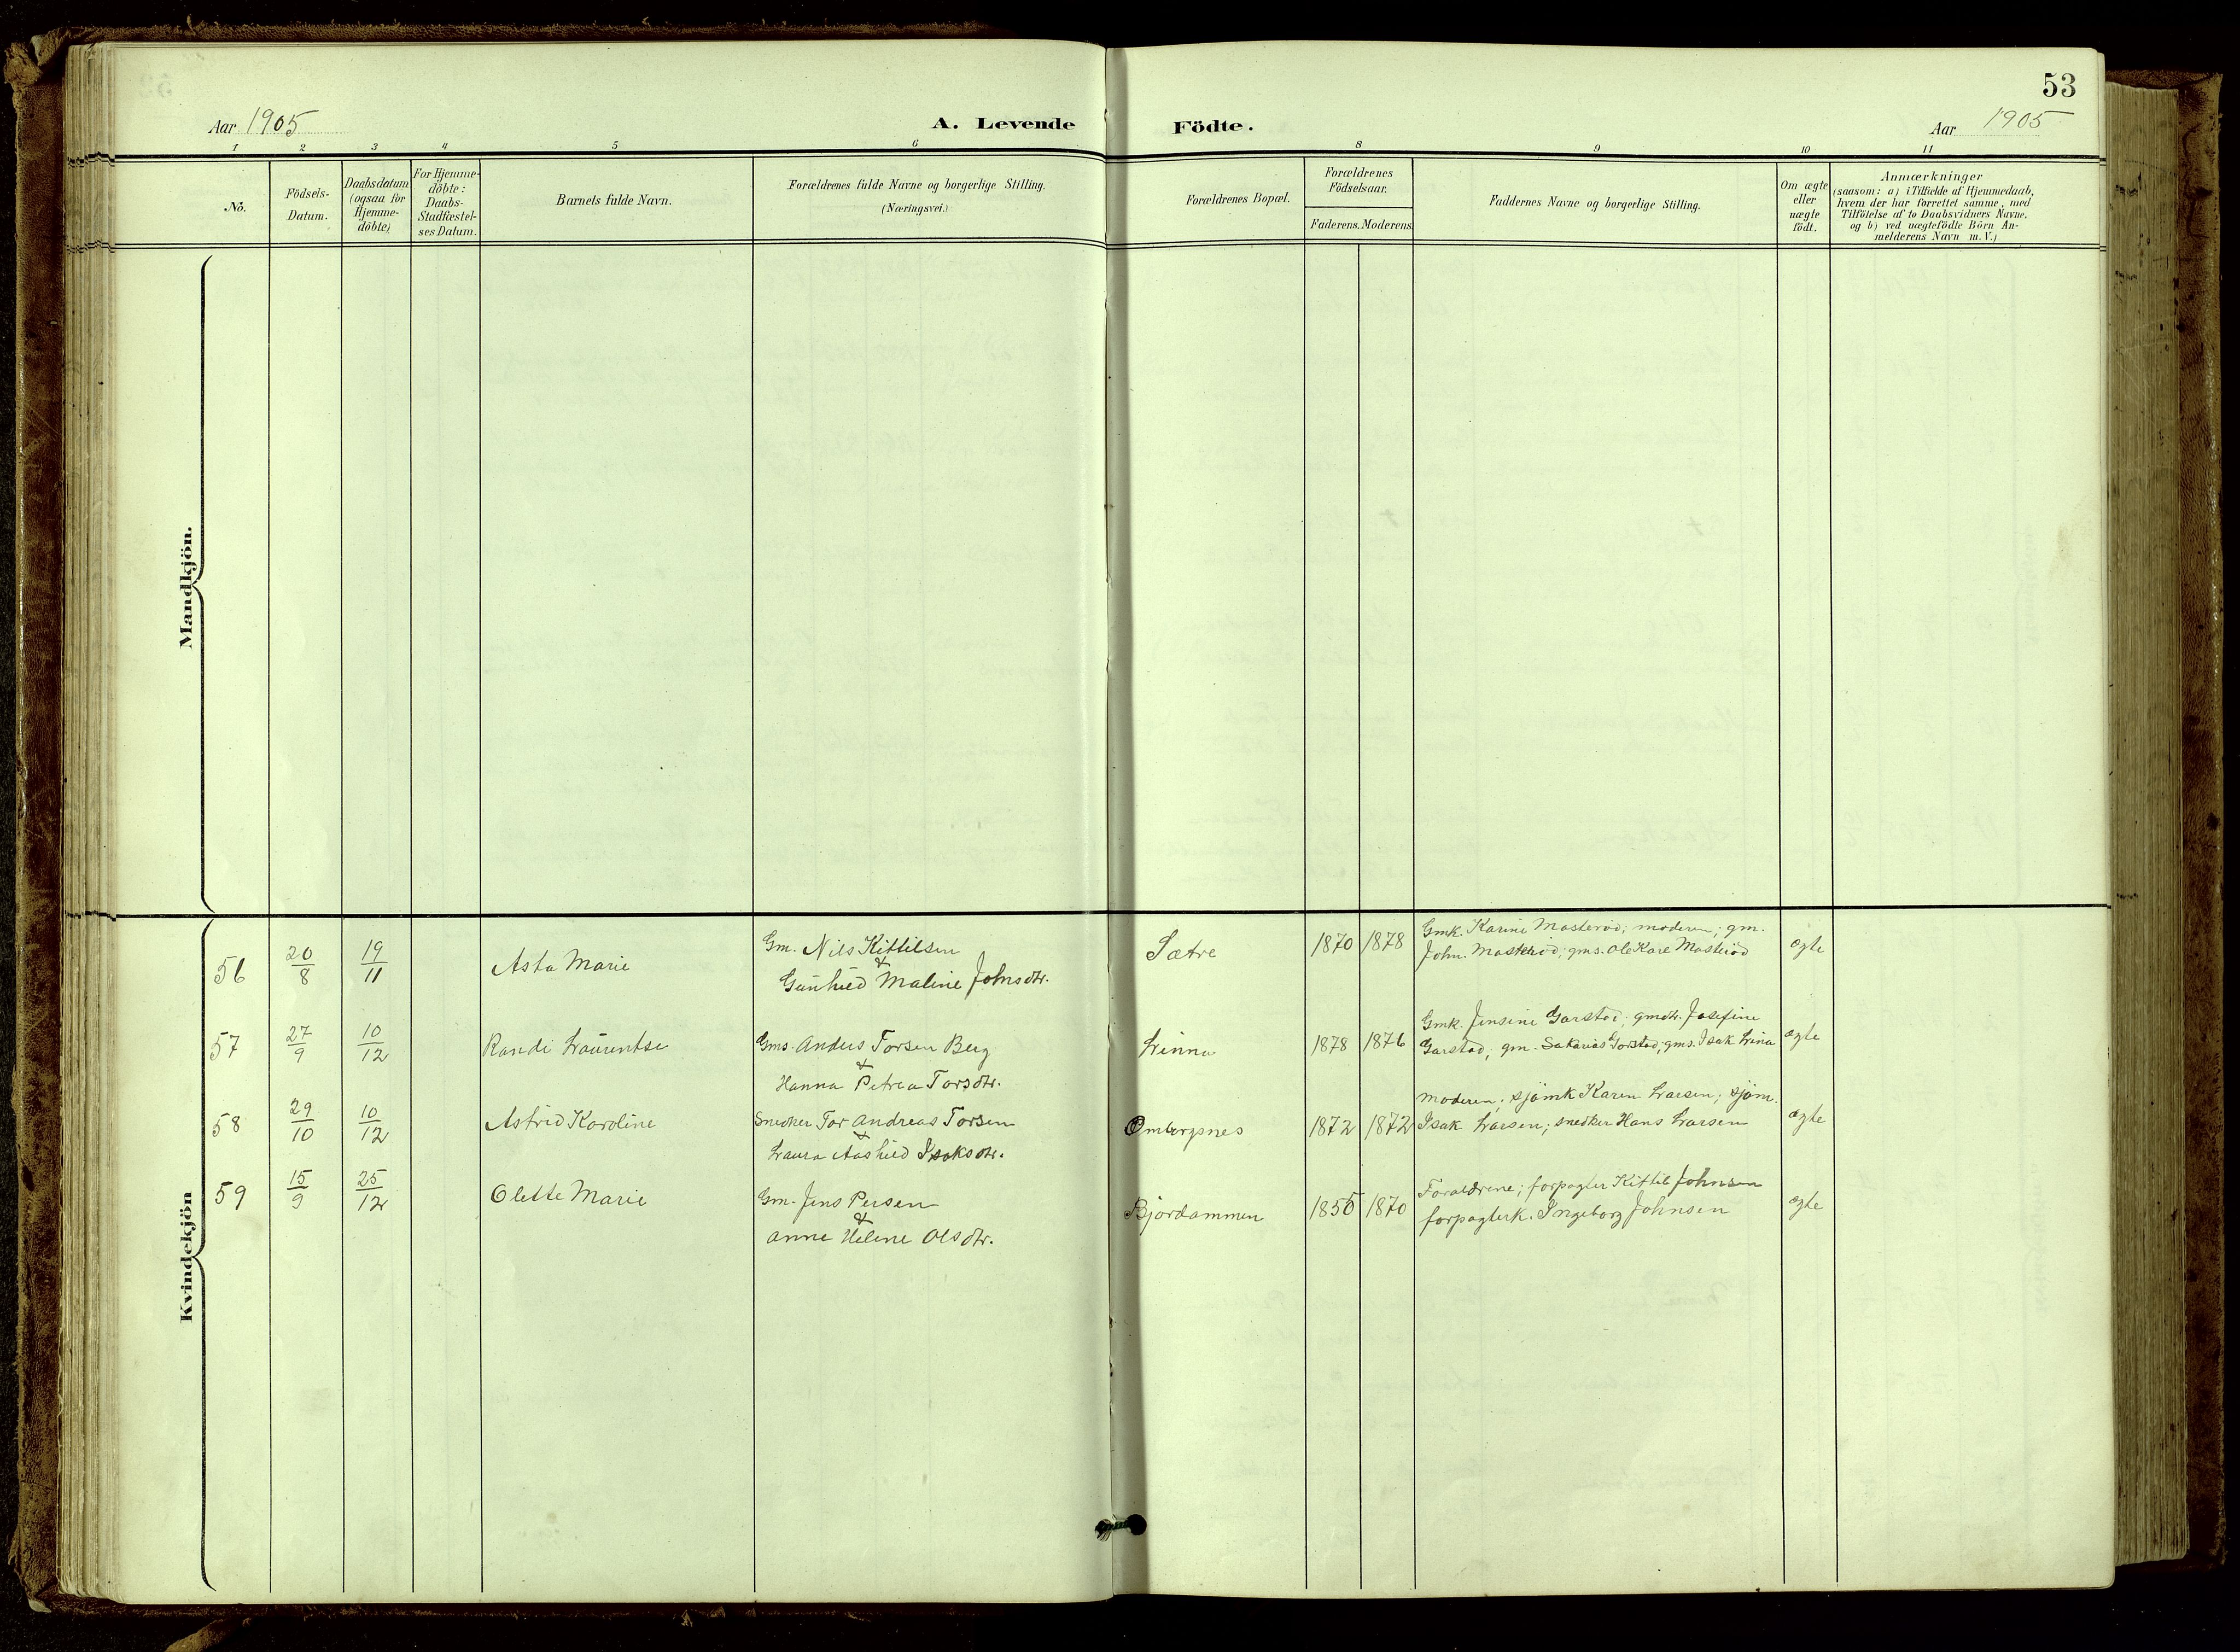 53
Aar 1905
A. Levende Födte.
Aar 1905
1 2 3 4 5 6 8 9 10 11
No.
Födsels-
Datum.
Daabsdatum
(ogsaa for
Hjemme-
döbte)
For Hjemme-
döbte:
Daabs-
Stadfæstel-
ses Datum.
Barnets fulde Navn.
Forældrenes fulde Navne og borgerlige Stilling.
(Næringsvei.)
Forældrenes Bopæl.
Forældrenes
Födselsaar.
Faderens. Moderens.
Faddernes Navne og borgerlige Stilling.
Om ægte
eller
uægte
födt.
Anmærkninger
(saasom: a) i Tilfælde af Hjemmedaab,
hvem der har forrettet samme, med
Tilföielse af to Daabsvidners Navne.
og b) ved uægtefödte Börn An-
melderens Navn m. V.)
Mandkjön.
Kvindekjön
56 20/8 19/11 Asta Marie
Gm. Nils Kittilsen
&
Gunhild Maline Johnsdtr.
Sætre 1870 1878
Gmk. Karine Masteröd; moderen; gm.
John. Masteröd; gms. Ole Kare Masteröd
ægte
57 27/9 10/12 Randi Laurentse
Gms. Anders Torsen Berg
&
Hanna Petrea Torsdtr.
Linna 1878 1876
Gmk. Jensine Garstad; gmdtr. Josefine
Garstad, gm. Sakarias Gorstad; gms. Isak Linna
ægte
58 29/10 10/12 Astrid Karoline
Snedker Tor Andreas Torsen
&
Laura Aashild Isaksdtr.
Omborgsnes 1872 1872
moderen; sjömk Karen Larsen; sjöm.
Isak Larsen; snedker Hans Larsen
ægte
59 15/9 25/12 Olette Marie
Gm. Jens Persen
&
Anne Helene Olsdtr.
Bjordammen 1855 1870
Forældrene; forpagter Kittil Johnsen
forpagterk. Ingeborg Johnsen
ægte